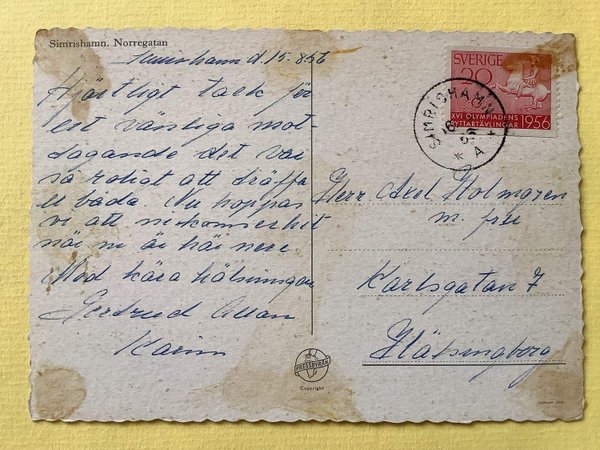 Simrishamn. Norregatan
Simrishamn d. 15. 8 56
Hjärtligt tack för
ert vänliga mot-
tagande det var
så roligt att träffa
er båda. Nu hoppas
vi att ni kommer hit
när ni är här nere.
Med kära hälsningar
Gertrud Allan
Karin
SVERIGE
20
XVI OLYMPIADENS
RYTTARTÄVLINGAR 1956
SIMRISHAMN
16
56
* A *
Herr Axel Holmgren
m. fru
Karlsgatan 7
Hälsingborg
PRESSBYRÅN
Copyright